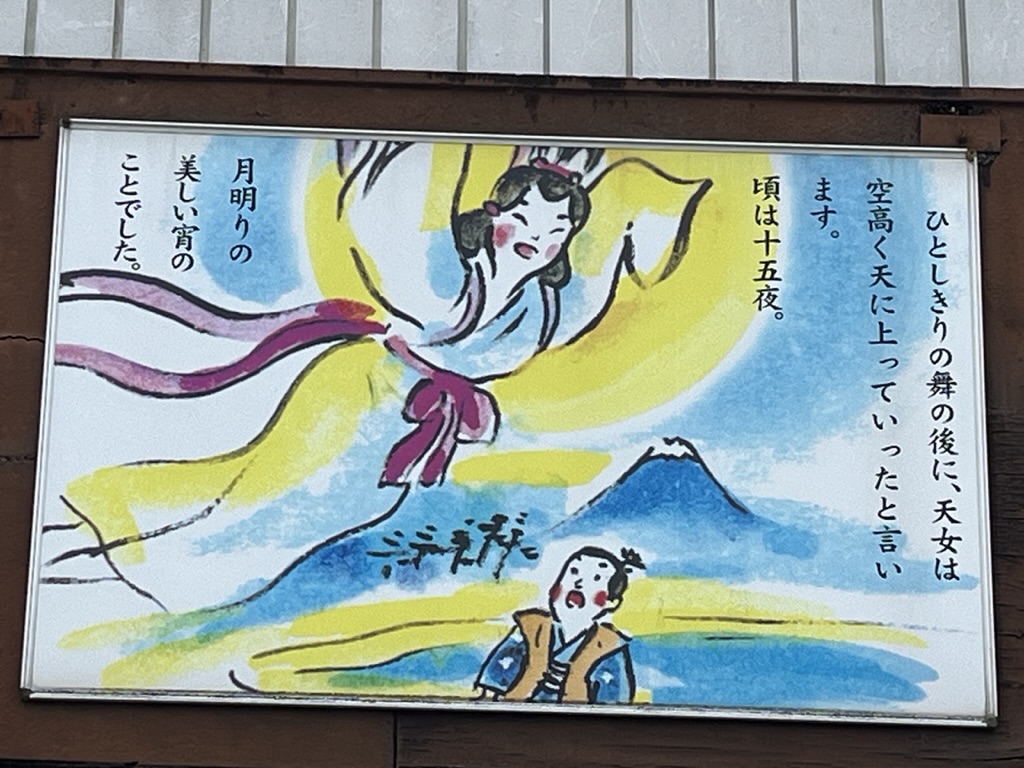 ひとしきりの舞の後に、天女は
空高く天に上っていったと言い
ます。
頃は十五夜。
月明りの
美しい宵の
ことでした。